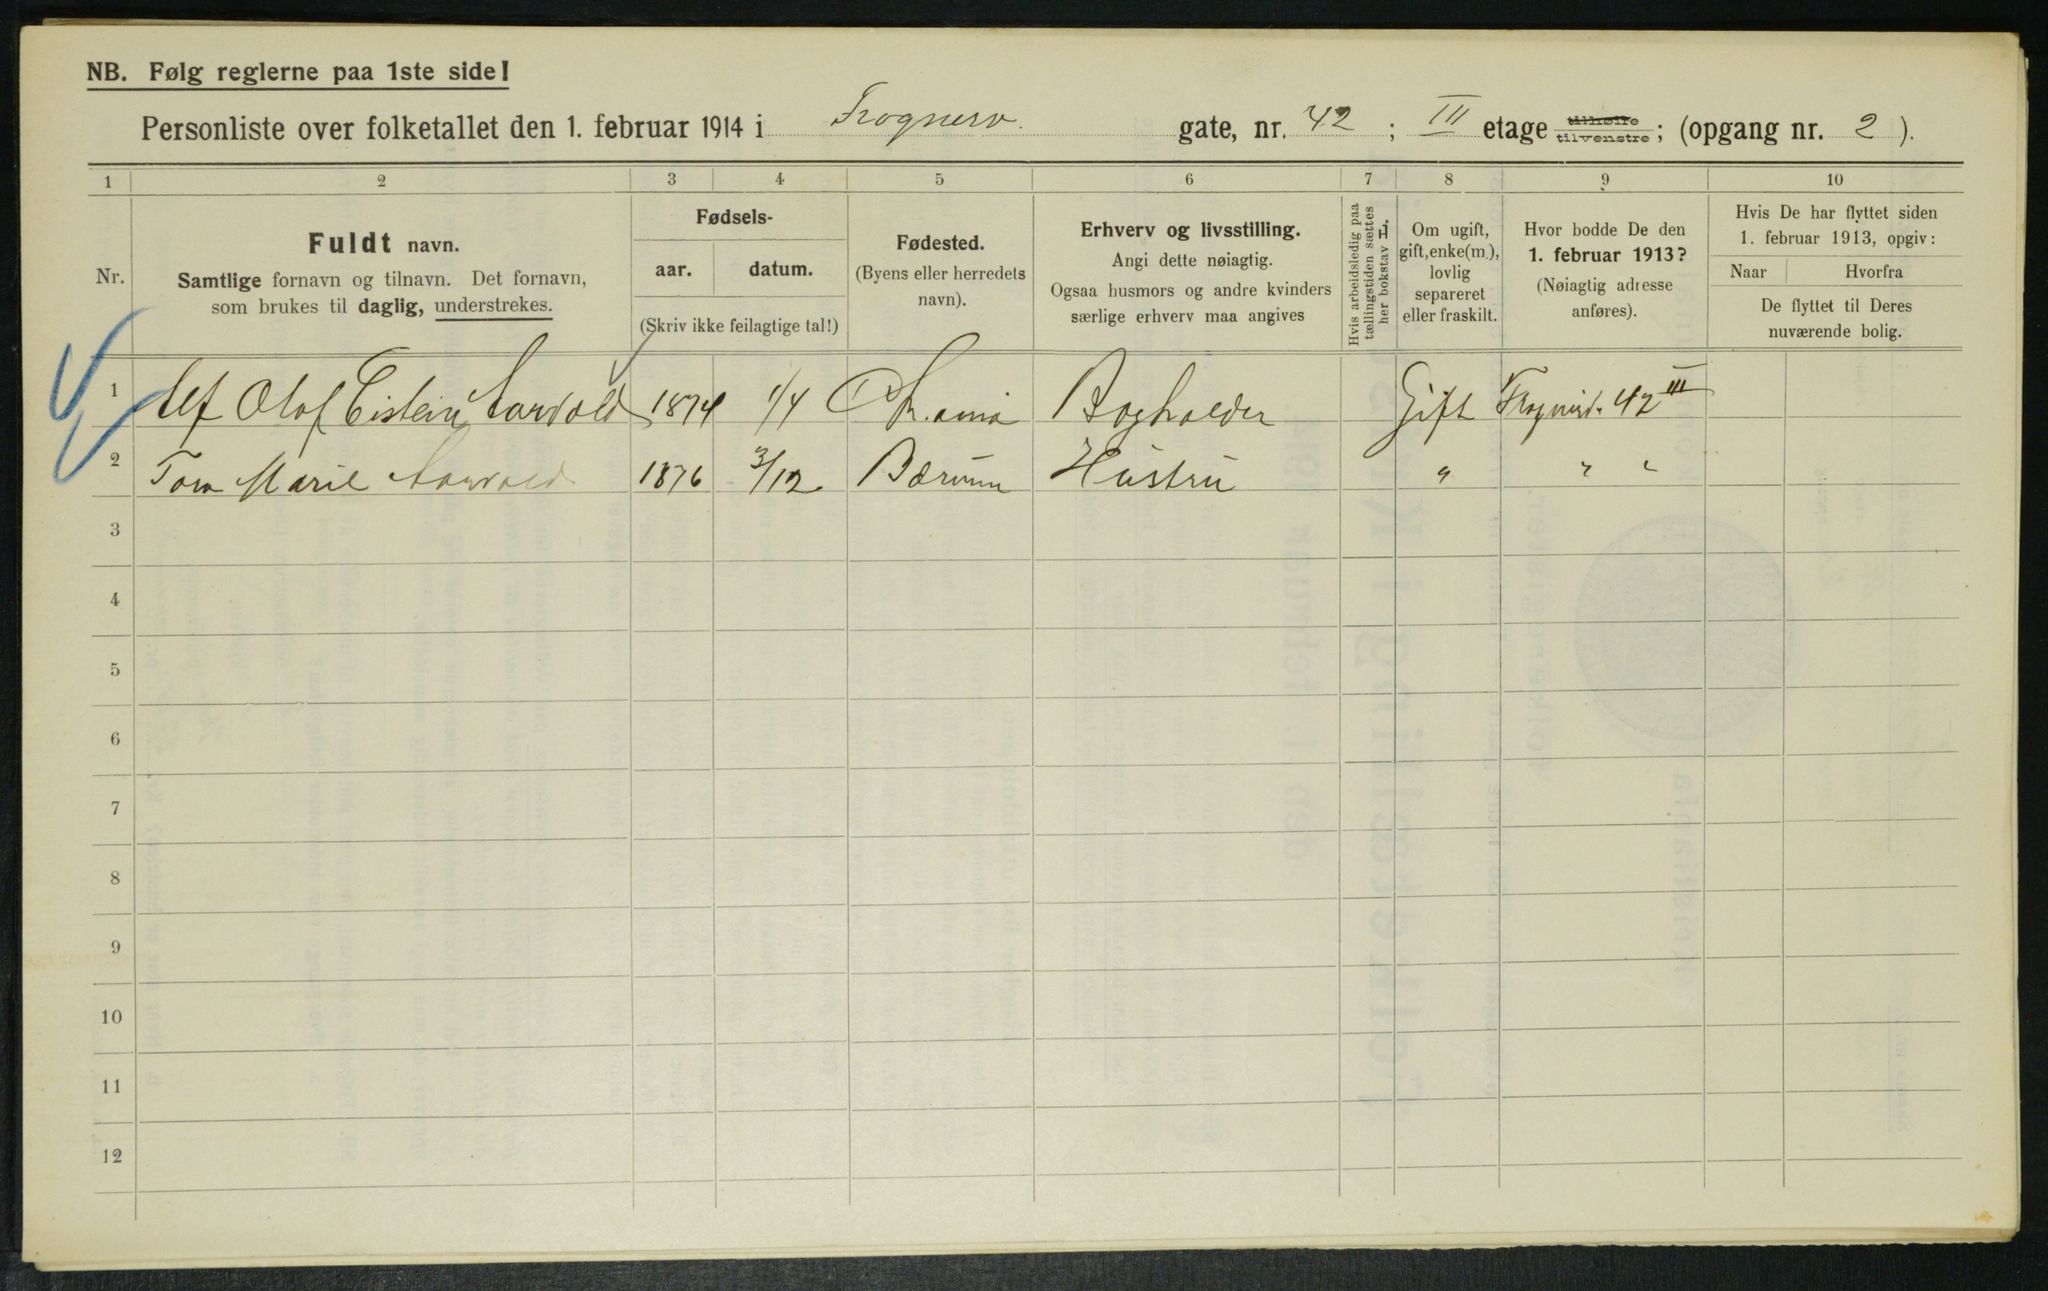 NB. Følg reglerne paa 1ste side!
Personliste over folketallet den 1. februar 1914 i Frognerv. gate, nr. 42 ; III etage tilhøire tilvenstre ; (opgang nr. 2 ).
1 2 3 4 5 6 7 8 9 10
Nr.
Fuldt navn.
Samtlige fornavn og tilnavn. Det fornavn,
som brukes til daglig, understrekes.
Fødsels-
aar. datum.
(Skriv ikke feilagtige tal!)
Fødested.
(Byens eller herredets
navn).
Erhverv og livsstilling.
Angi dette nøiagtig.
Ogsaa husmors og andre kvinders
særlige erhverv maa angives
Hvis arbeidsledig paa
tællingstiden sættes
her bokstav L.
Om ugift,
gift, enke(m.),
lovlig
separeret
eller fraskilt.
Hvor bodde De den
1. februar 1913?
(Nøiagtig adresse
anføres).
Hvis De har flyttet siden
1. februar 1913, opgiv:
Naar Hvorfra
De flyttet til Deres
nuværende bolig.
1 Alf Olaf Eistein Aarvold 1874 1/4 Kr.ania Bogholder Gift Frognerv. 42 III
2 Tora Marie Aarvold 1876 3/12 Bærum Hustru " " "
3
4
5
6
7
8
9
10
11
12